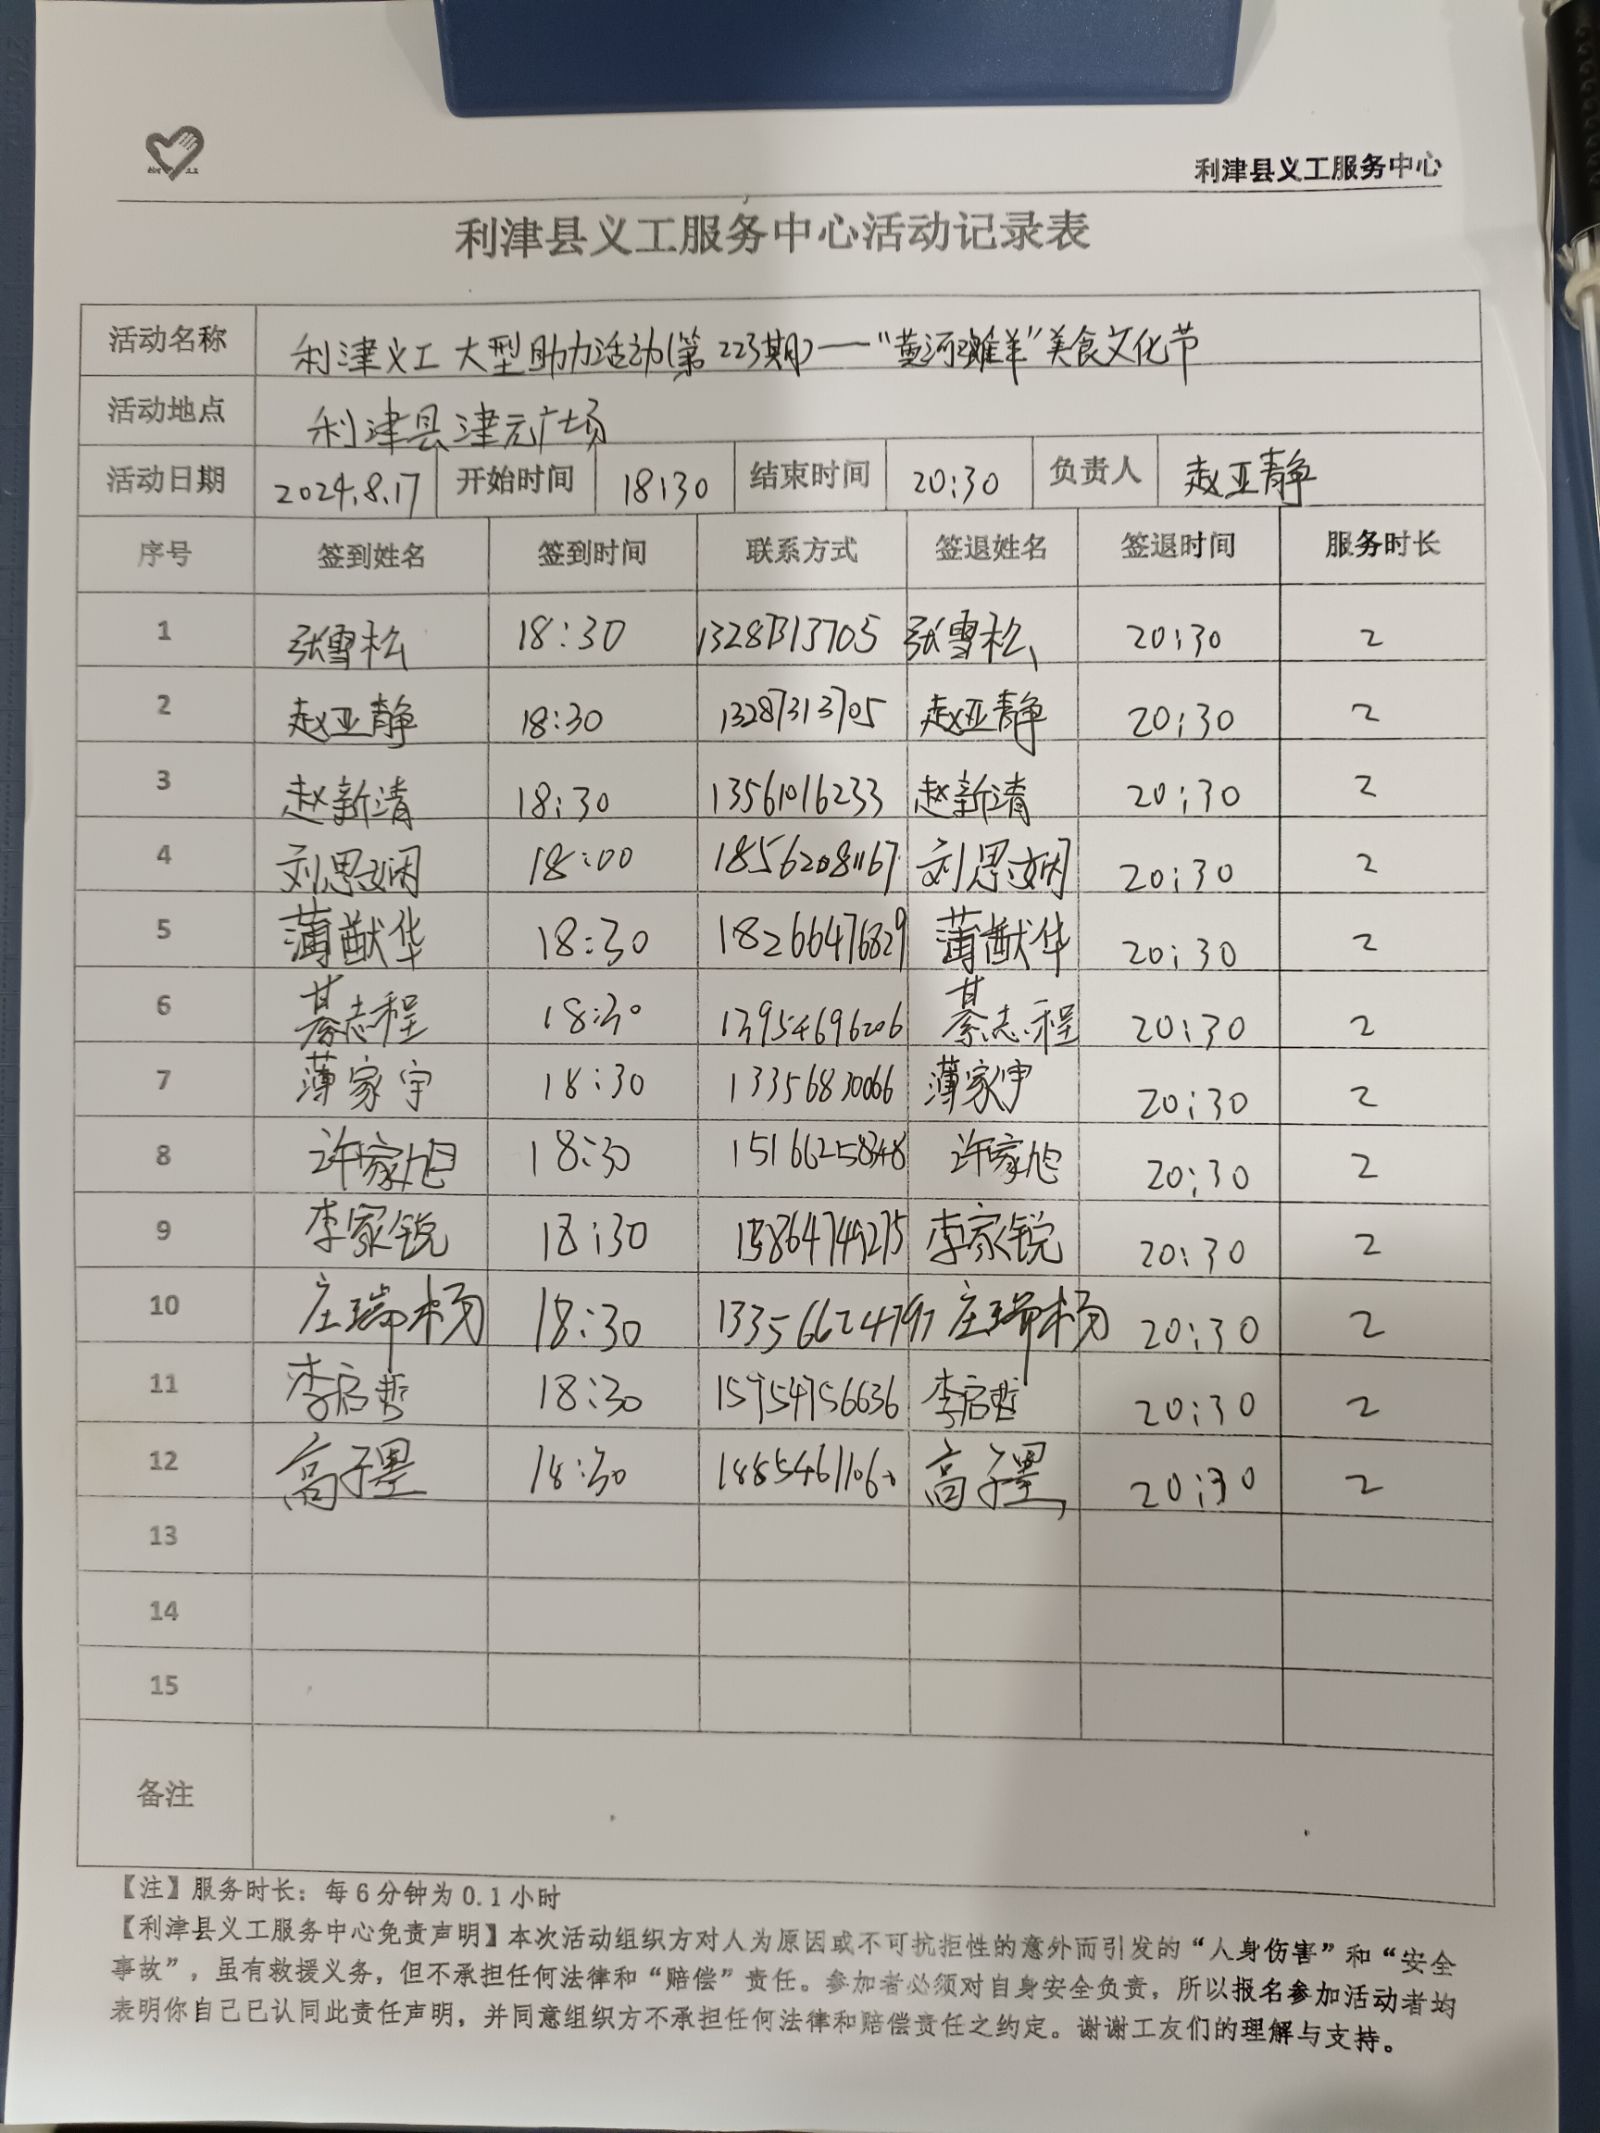 利津县义工服务中心
利津县义工服务中心活动记录表
活动名称 利津义工大型助力活动(第223期)——“黄河滩羊”美食文化节
活动地点 利津县津元广场
活动日期 2024.8.17 开始时间 18:30 结束时间 20:30 负责人 赵亚静
序号 签到姓名 签到时间 联系方式 签退姓名 签退时间 服务时长
1 张雪松 18:30 13287313705 张雪松 20:30 2
2 赵亚静 18:30 13287313705 赵亚静 20:30 2
3 赵新清 18:30 13561016233 赵新清 20:30 2
4 刘思炳 18:00 18562081167 刘思炳 20:30 2
5 薄猷华 18:30 18266476829 薄猷华 20:30 2
6 綦志程 18:30 13954696206 綦志程 20:30 2
7 薄家宇 18:30 13356830066 薄家宇 20:30 2
8 许家旭 18:30 15166258348 许家旭 20:30 2
9 李家锐 18:30 15864749275 李家锐 20:30 2
10 庄瑞杨 18:30 13356624797 庄瑞杨 20:30 2
11 李启哲 18:30 15954756636 李启哲 20:30 2
12 高子墨 18:30 18854611060 高子墨 20:30 2
13
14
15
备注
【注】服务时长：每6分钟为0.1小时
【利津县义工服务中心免责声明】本次活动组织方对人为原因或不可抗拒性的意外而引发的“人身伤害”和“安全
事故”，虽有救援义务，但不承担任何法律和“赔偿”责任。参加者必须对自身安全负责，所以报名参加活动者均
表明你自己已认同此责任声明，并同意组织方不承担任何法律和赔偿责任之约定。谢谢工友们的理解与支持。